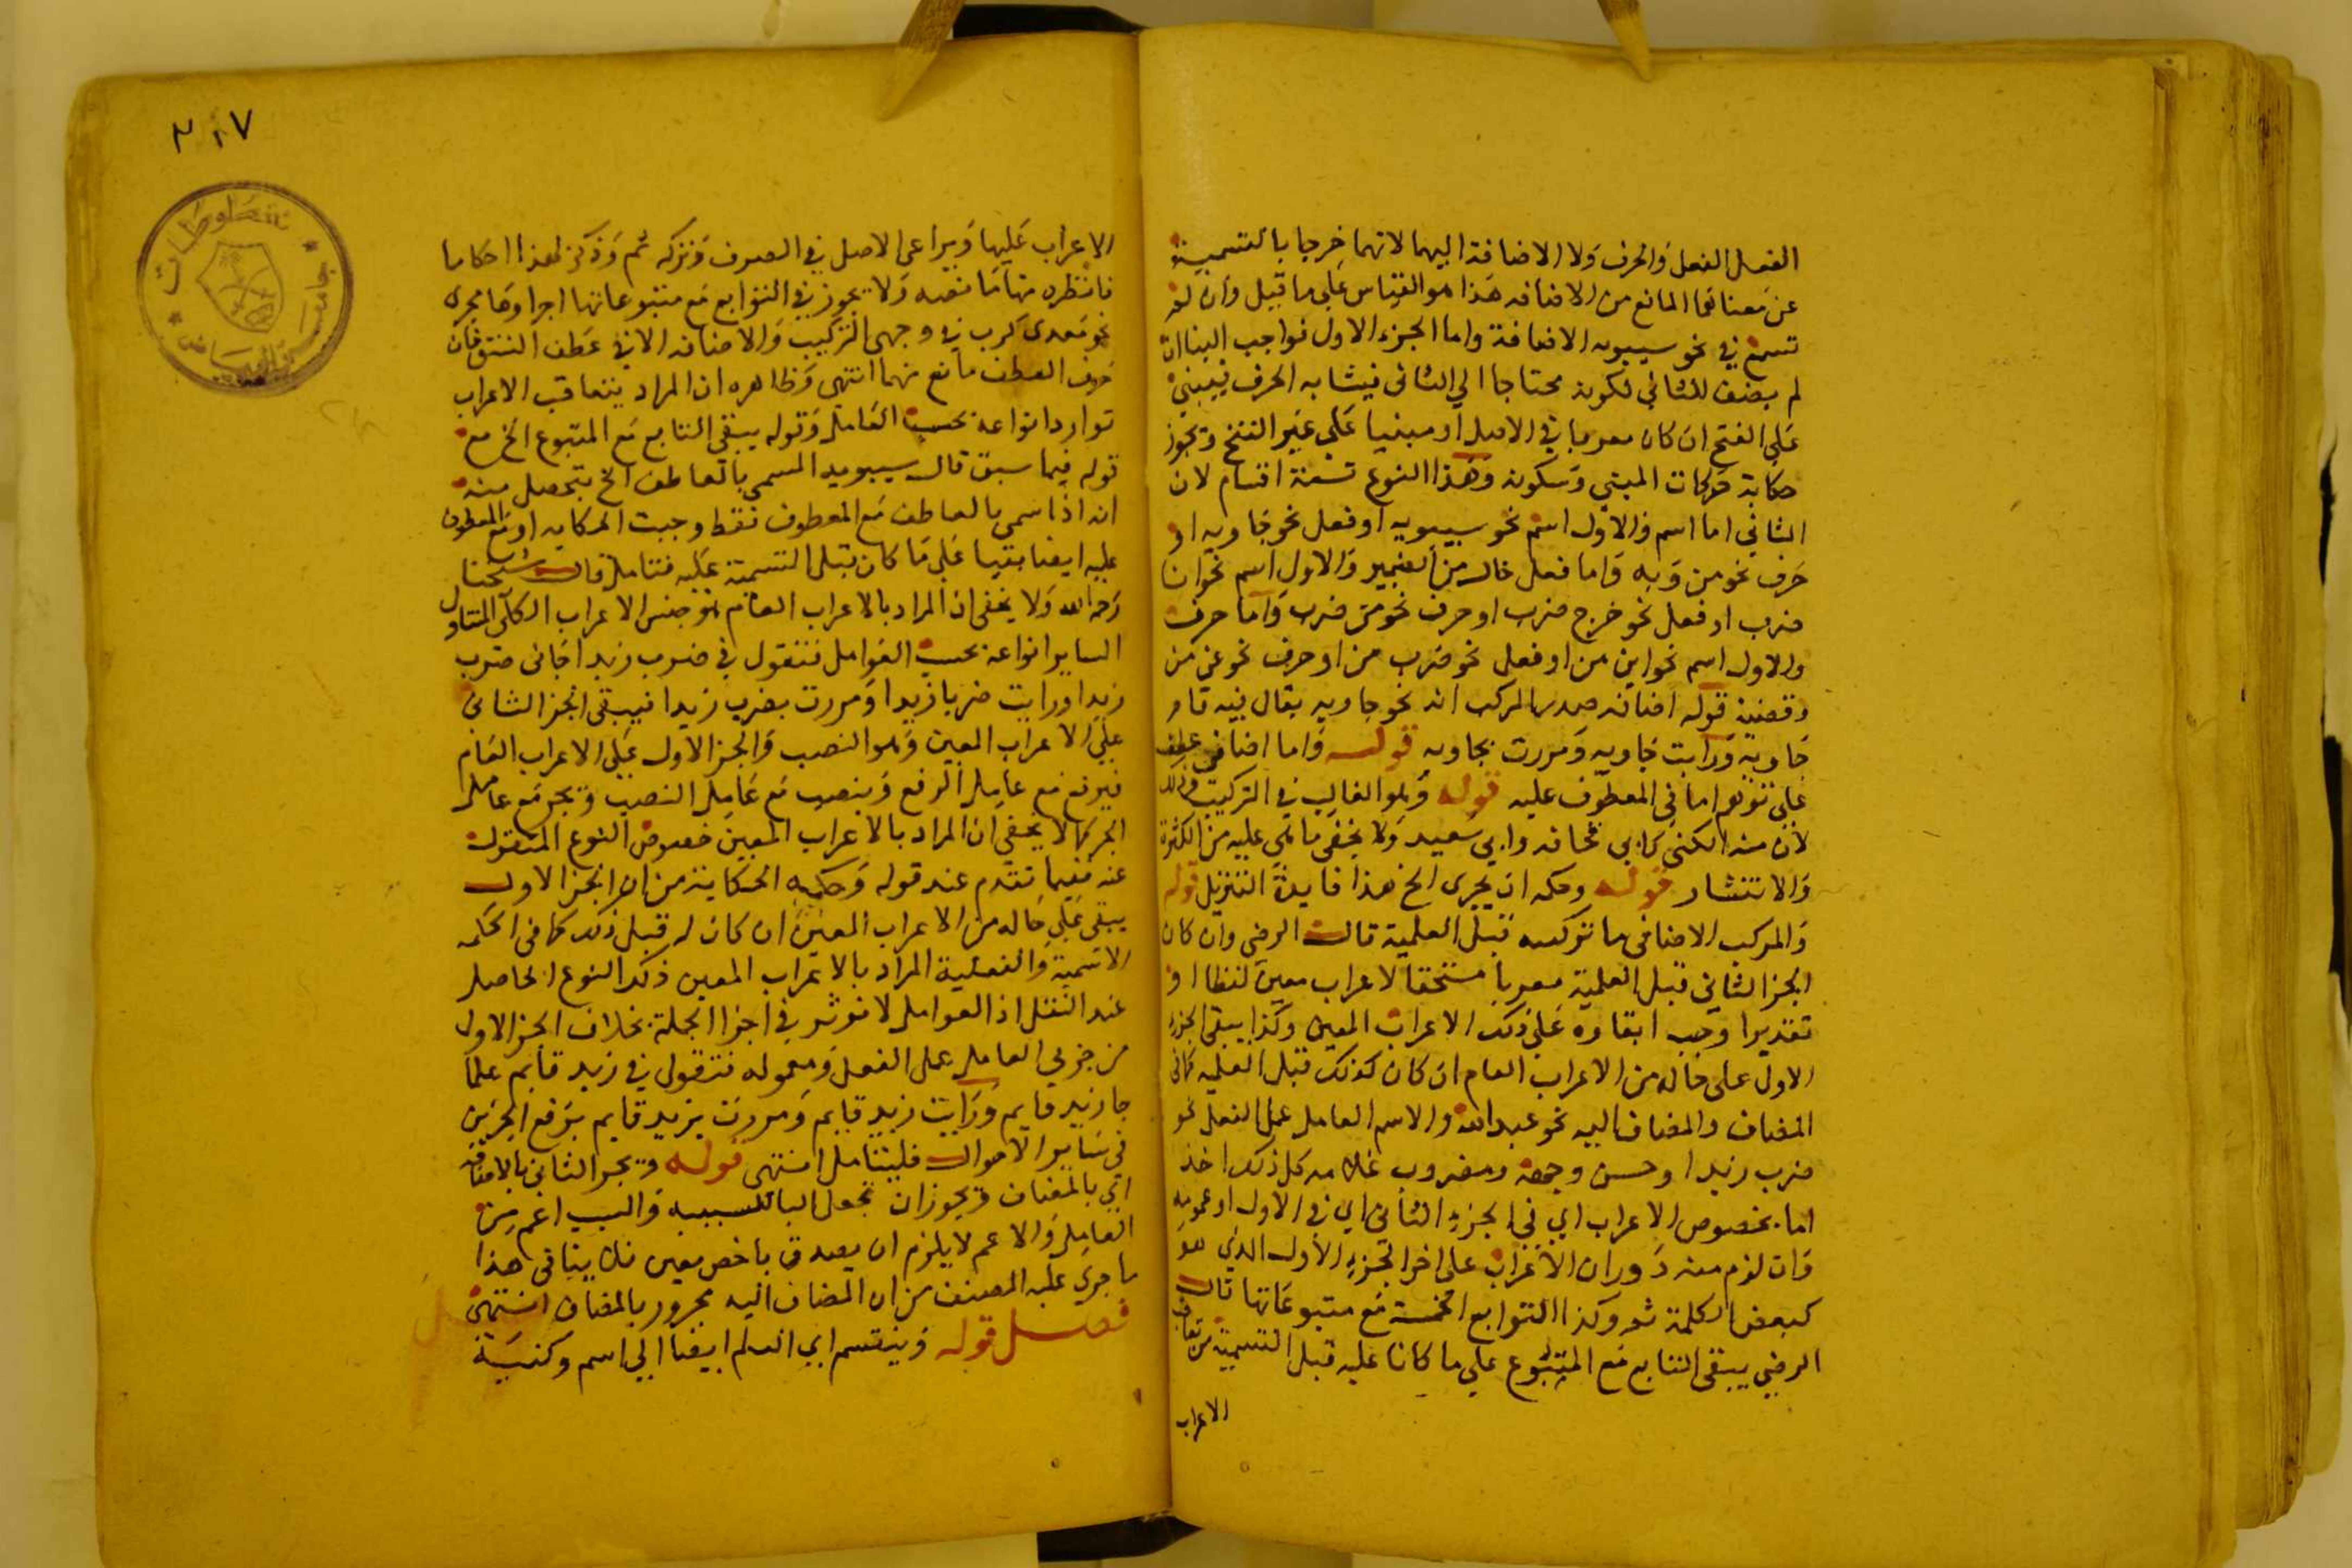 الفعل الفعل والحرف ولا الاضافة اليهما لانهما خرجا بالتسمية
عن معناهما المانع من الاضافه هذا هو القياس على ما قيل وان لم
تسمع في نحو سيبويه الاضافة واما الجزء الاول فواجب البنا ان
لم يضف للثاني لكونه محتاجا الى الثانى فيشابه الحرف فيبنى
على الفتح ان كان معربا في الاصل او مبنيا على غير الفتح وتجوز
حكاية حركات المبني وسكونه وهذا النوع تسعة اقسام لان
الثاني اما اسم والاول اسم نحو سيبويه او فعل نحو جاويه او
حرف نحو من ويه واما فعل خال من الضمير والاول اسم نحو انا
ضرب او فعل نحو خرج ضرب او حرف نحو من ضرب واما حرف
والاول اسم نحو اين من او فعل نحو ضرب من او حرف نحو عن من
وقضية قوله اضافه صدر المركب انه نحو جاويه يقال فيه قام
جاويه ورايت جاويه ومررت بجاويه قوله واما اضافى عطف
على توهم اما في المعطوف عليه قوله وهو الغالب في التركيب وذلك
لان منه الكنى كابى قحافه وابي سعيد ولا يخفى ما هي عليه من الكثرة
والانتشار قوله وحكمه ان يجرى الخ هذا فايدة التنزيل قوله
والمركب الاضافى ما تركيبه قبل العلمية قال الرضي وان كان
الجزا الثاني قبل العلمية معربا مستحقا لاعراب معين لفظا او
تقديرا وجب ابقاوه على ذلك الاعراب المعين وكذا يبقى الجزء
الاول على حاله من الاعراب العام ان كان كذلك قبل العلمية كما فى
المضاف والمضاف اليه نحو عبد الله والاسم العامل عمل الفعل نحو
ضرب زيدا وحسن وجهه ومضروب غلامه كل ذلك اخذ
اما بخصوص الاعراب اي في الجزء الثاني اي في الاول او عمومه
وان لزم منه دوران الاعراب على اخر الجزء الاول الذي هو
كبعض الكلمة ثم وكذا التوابع الخمسة مع متبوعاتها قال
الرضي يبقى التابع مع المتبوع على ما كانا عليه قبل التسمية من تعاقب
الاعراب
٣٠٧
الاعراب عليها ويراعى الاصل في الصرف وتركه ثم وذكر لهذا احكاما
فانظره تماما نصه ولا يجوز في التوابع مع متبوعاتها اجراوها مجرى
نحو معدى كرب في وجهى التركيب والاضافه الا في عطف النسق فان
حرف العطف مانع منهما انتهى وظاهره ان المراد بتعاقب الاعراب
توارد انواعه بحسب العامل وقوله يبقى التابع مع المتبوع الخ مع
قوله فيما سبق قال سيبويه المسمى بالعاطف الخ يتحصل منه
انه اذا سمى بالعاطف مع المعطوف فقط وجبت الحكايه او مع المعطوف
عليه ايضا بقيا على ما كان قبل التسمية عليه فتامل قال شيخنا
رحمه الله ولا يخفى ان المراد بالاعراب العام هو جنس الاعراب الكلى المتناول
الساير انواعه بحسب العوامل فتقول في ضرب زيدا جانى ضرب
زيدا ورايت ضربا زيدا ومررت بضرب زيدا فيبقى الجزا الثانى
على الاعراب المعين وهو النصب والجزا الاول على الاعراب العام
فيرفع مع عامل الرفع وينصب مع عامل النصب ويجر مع عامل
الجر كما لا يخفي ان المراد بالاعراب المعين خصوص النوع المنقول
عنه فيما تقدم عند قوله وحكمه الحكاية من ان الجزا الاول
يبقى على حاله من الاعراب المعين ان كان له قبل ذلك كما فى الجمله
الاسمية والفعلية المراد بالاعراب المعين ذلك النوع الحاصل
عند النقل اذ العوامل لا توثر في اجزا الجملة بخلاف الجزا الاول
من جزءي العامل عمل الفعل ومعموله فتقول في زيد قايم علما
جا زيد قايم ورايت زيد قايم ومررت بزيد قايم برفع الجزين
في ساير الاحوال فليتامل انتهى قوله ويجر الثاني بالاضافه
اي بالمضاف ويجوز ان تجعل البا للسببيه والسبب اعم من
العامل والاعم لا يلزم ان يصدق باخص معين فلا ينافى هذا
ما جرى عليه المصنف من ان المضاف اليه مجرور بالمضاف انتهى
فصل قوله وينقسم اي العلم ايضا الى اسم وكنية